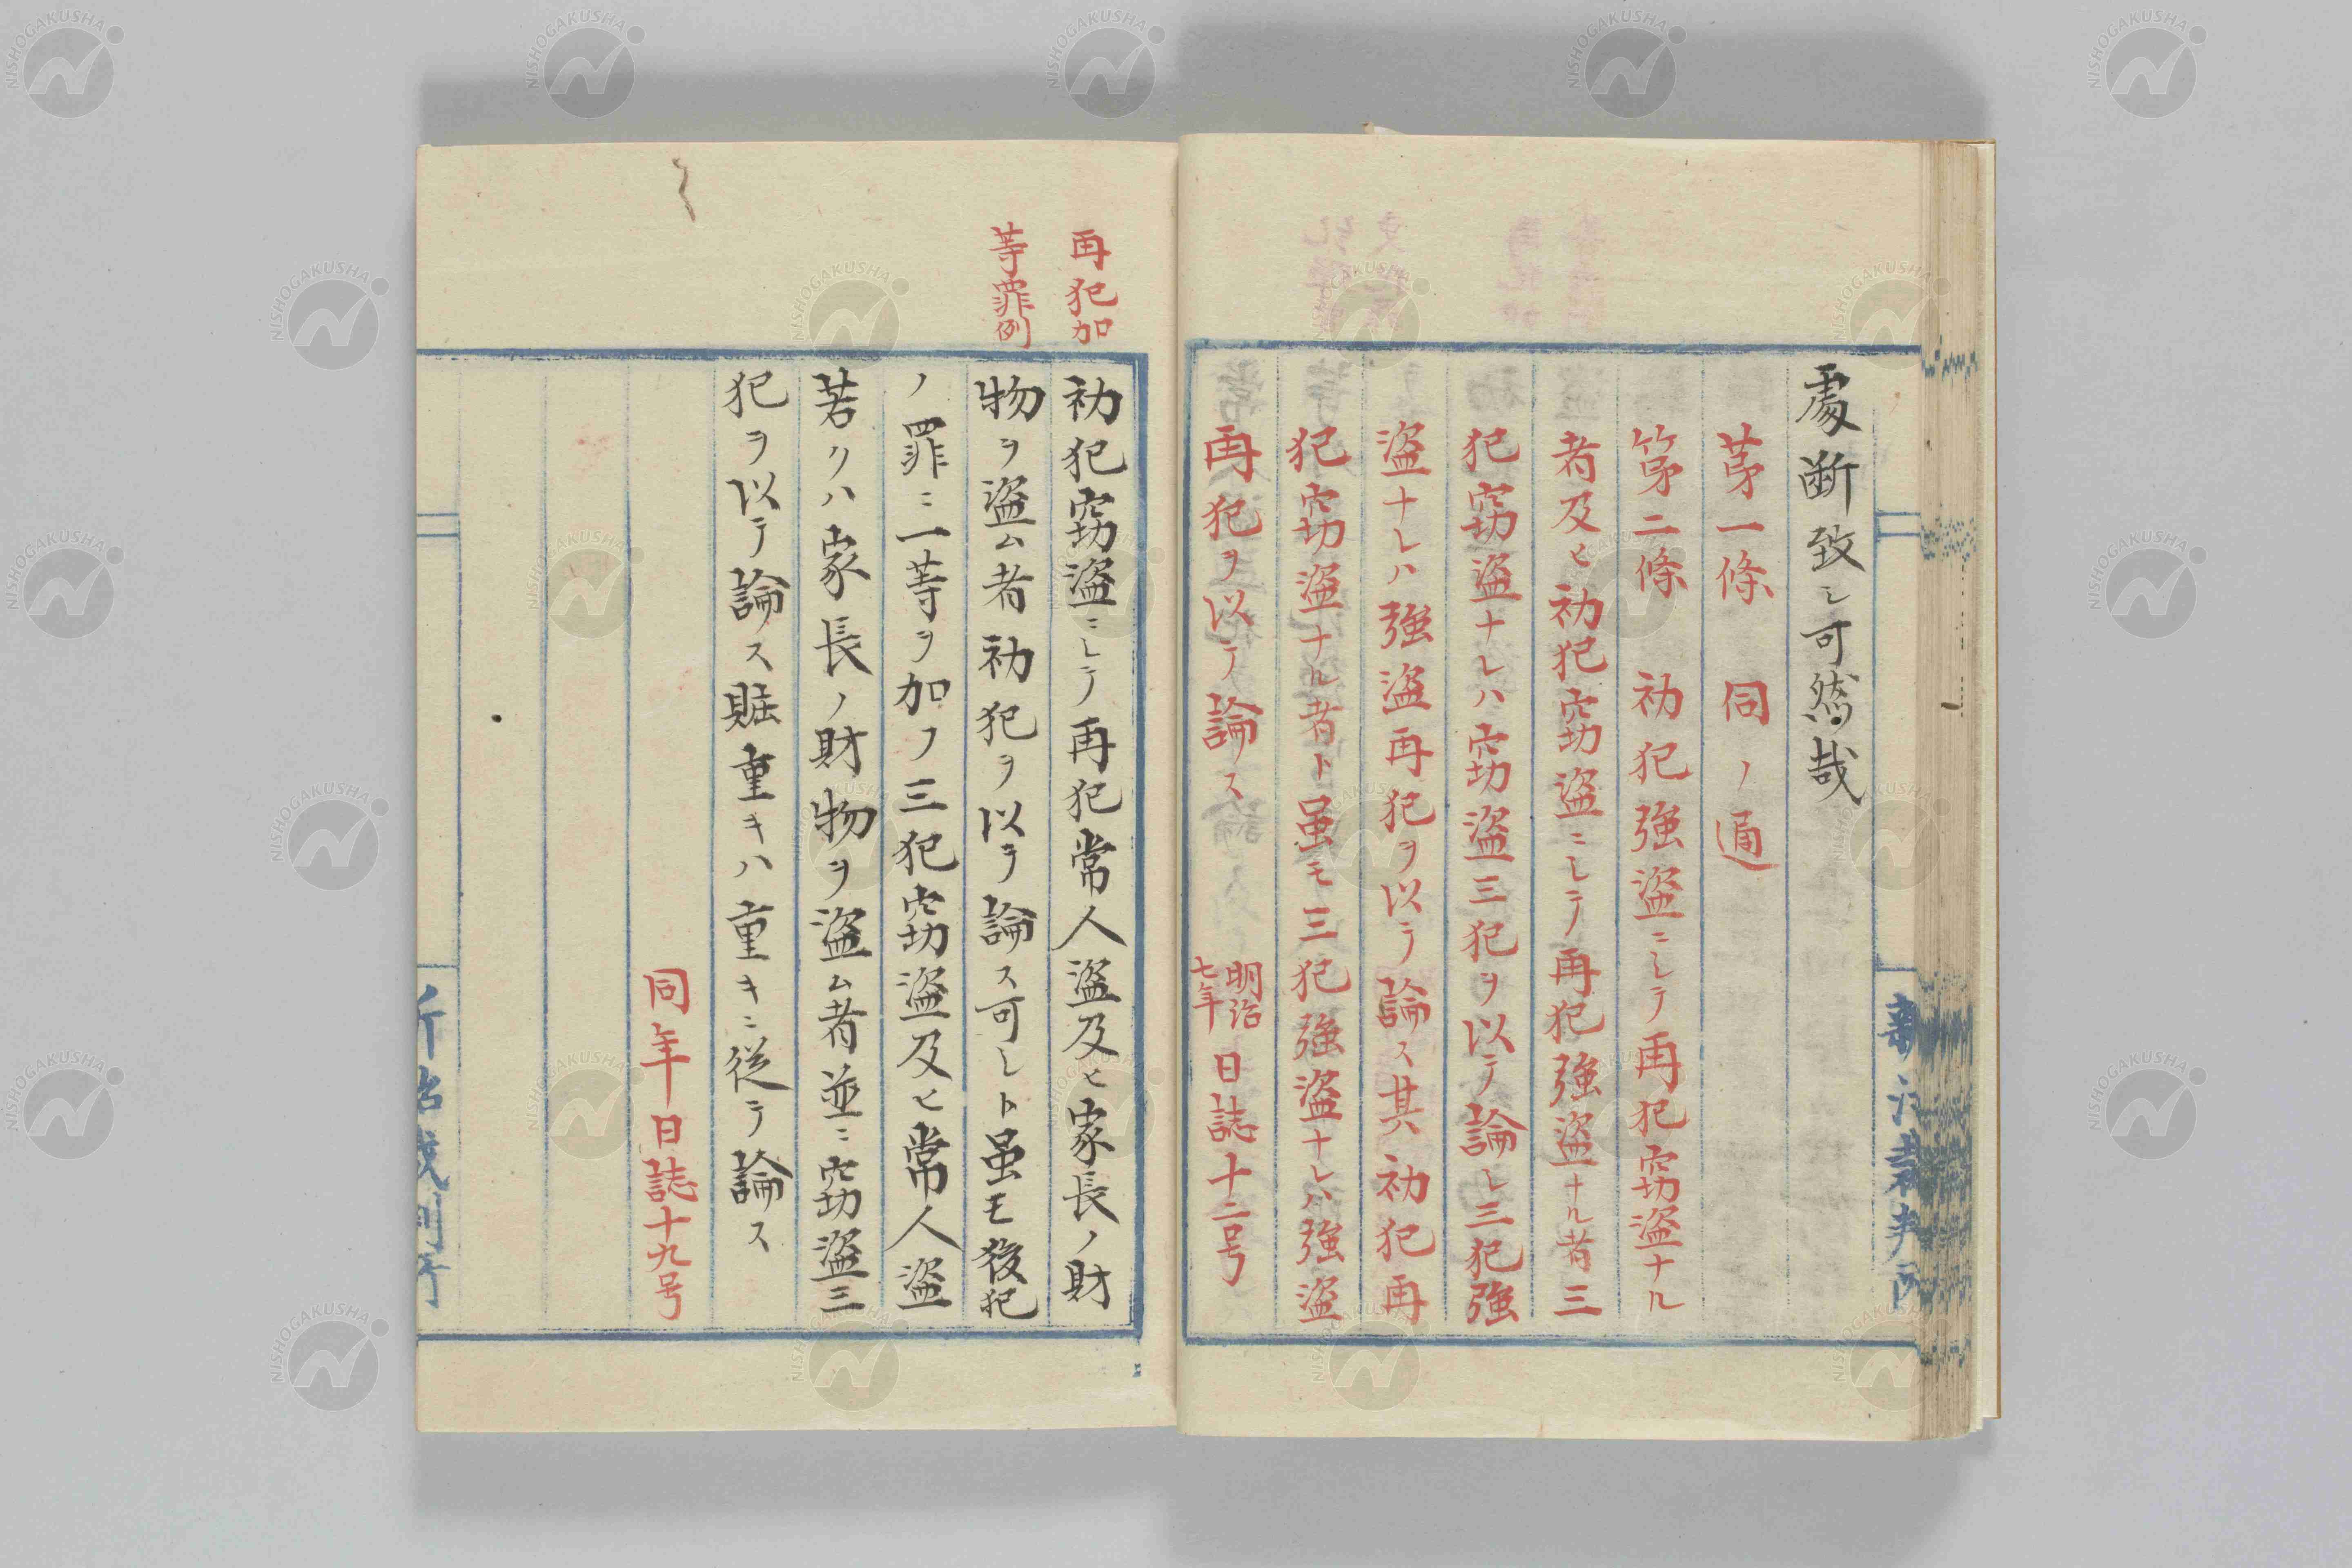 處断致シ可然哉
苐一條　伺ノ通
第二條　初犯強盗ニシテ再犯窃盗ナル
者及ヒ初犯窃盗ニシテ再犯強盗ナル者三
犯窃盗ナレハ窃盗三犯ヲ以テ論シ三犯強
盗ナレハ強盗再犯ヲ以テ論ス其初犯再
犯窃盗ナル者ト虽モ三犯強盗ナレハ強盗
再犯ヲ以テ論ス　明治七年日誌十二号
新治裁判所
再犯加
等罪例
初犯窃盗ニシテ再犯常人盗及ヒ家長ノ財
物ヲ盗ム者初犯ヲ以テ論ス可シト虽モ後犯
ノ罪ニ一等ヲ加フ三犯窃盗及ヒ常人盗
若クハ家長ノ財物ヲ盗ム者並ニ窃盗三
犯ヲ以テ論ス賍重キハ重キニ従テ論ス
同年日誌十九号
新治裁判所
NISHOGAKUSHA